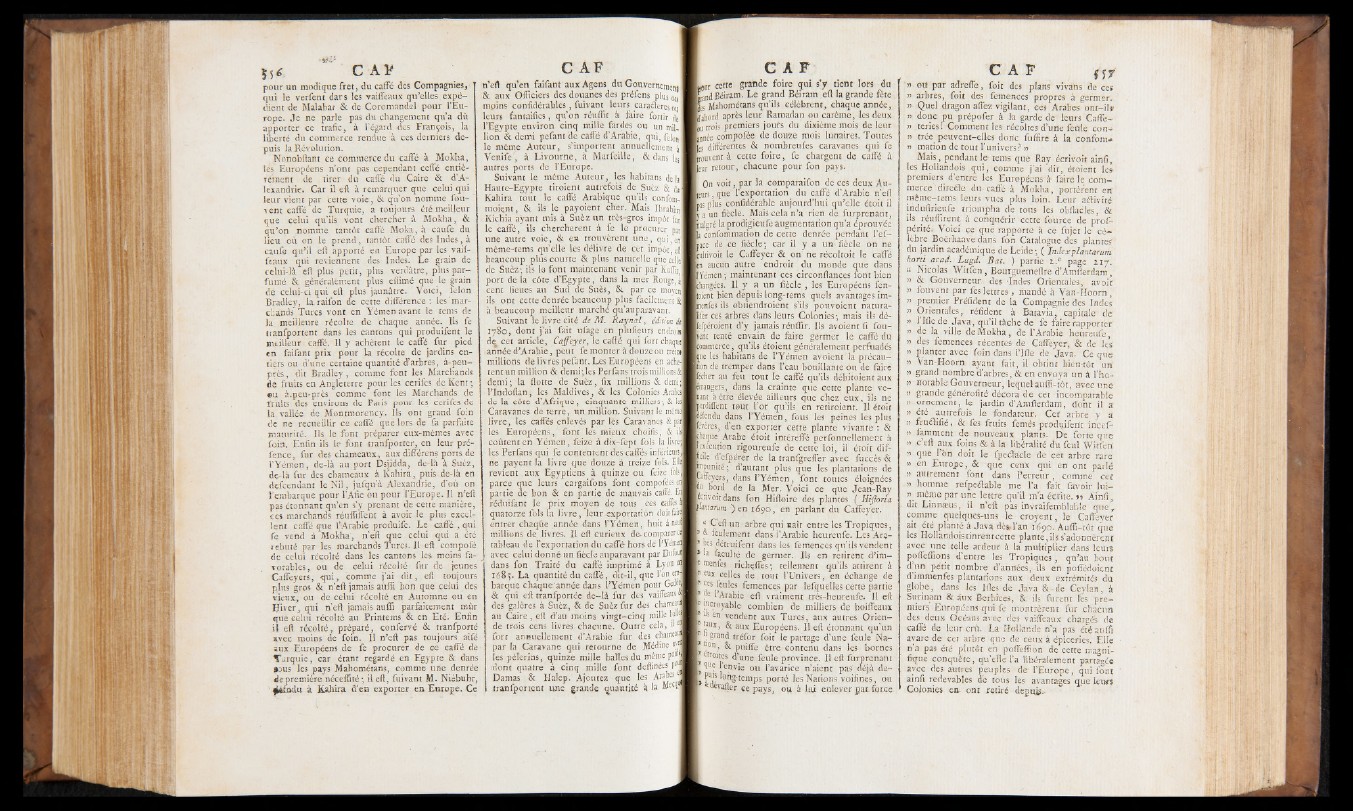 556 CAF
pour un modique fret, du caffé des Compagnies,
qui le versent dans les vaisseaux qu'elles expé-
dient de Malabar & de Coromandel pour l'Eu-
rope. Je ne parle pas du changement qu'a dû
apporter ce trafic, à l'égard des François, la
liberté du commerce rendue à ces derniers de-
puis la Révolution.
Nonobstant ce commerce du caffé à Mokha,
les Européens n'ont pas cependant cessé entiè-
rement de tirer du caffé du Caire & d'A-
lexandrie. Car il est à remarquer que celui qui
leur vient par cette voie, & qu'on nomme sou-
vent caffé de Turquie, a toujours été meilleur
que celui qu'ils vont chercher à Mokha, &
qu'on nomme tantôt caffé Moka, à cause du
lieu où on le prend, tantôt caffé des Indes, à
cause qu'il est apporté en Europe par les vais-
seaux qui reviennent des Indes. Le grain de
celui-là est plus petit, plus verdâtre, plus par-
fumé & généralement plus estimé que le grain
de celui-ci qui est plus jaunâtre. Voici, selon
Bradley, la raison de cette différence : les mar-
chands Turcs vont en Yémen avant le tems de
la meilleure récolte de chaque année. Ils se
transportent dans les cantons qui produisent le
meilleur caffé. Il y achètent le caffé sur pied
en faisant prix pour la récolte de jardins en-
tiers ou d'une certaine quantité d'arbres, à-peu-
près, dit Bradley, comme font les Marchands
de fruits en Angleterre pour les cerises de Kent;
ou à-peu-près comme font les Marchands de
fruits des environs de Paris pour les cerises de
la vallée de Montmorency. Ils ont grand soin
de ne recueillir ce caffé que lors de sa parfaite
maturité. Ils le font préparer eux-mêmes avec
soin. Enfin ils le font transporter, en leur pré-
sence, sur des chameaux, aux différens ports de
l'Yémen, de-là au port Dsjidda, de-là à Suez,
de-là sur des chameaux à Kahira, puis de-là en
descendant le Nil, jusqu'à Alexandrie, d'où on
l'embarque pour l'Asie ou pour l'Europe. Il n'est
pas étonnant qu'en s'y prenant de cette manière,
ces marchands réussissent à avoir le plus excel-
lent caffé que l'Arabie produise. Le caffé, qui
se vend à Mokha, n'est que celui qui a été
rebuté par les marchands Turcs. Il est composé
de celui récolté dans les cantons les moins fa-
vorables, ou de celui récolté sur de jeunes
Caffeyers, qui, comme j'ai dit, est toujours
plus gros & n'est jamais aussi bon que celui des
vieux, ou de celui récolté en Automne ou en
Hiver, qui n'est jamais aussi parfaitement mûr
que celui récolté au Printems & en Eté. Enfin
il est récolté, préparé, conservé & transporté
avec moins de soin. Il n'est pas toujours aisé
aux Européens de se procurer de ce caffé de
Turquie, car étant regardé en Egypte & dans
tous les pays Mahométans, comme une denrée
de première nécessité; il est, suivant M. Niébuhr,
défendu à Kahira d'en exporter en Europe. Ce
CAF
n'est qu'en faisant aux Agens du Gouvernement
& aux Officiers des douanes des présens plus ou
moins considérables, suivant leurs caractères ou
leurs fantaisies, qu'on réussit à faire sortir de
l'Egypte environ cinq mille fardes ou un mil-
lion & demi pesant de caffé d'Arabie, qui, selon
le même Auteur, s'importent annuellement à
Venise, à Livourne, à Marseille, & dans les
autres ports de l'Europe.
Suivant le même Auteur, les habitans de la
Haute-Egypte tiroient autrefois de Suèz & de
Kahira tout le caffé Arabique qu'ils consom-
moient, & ils le payoient cher. Mais Ibrahim
Kichia ayant mis à Suèz un très-gros impôt sur
le caffé, ils cherchèrent à se le procurer par
une autre voie, & en trouvèrent une, qui, en
même-tems qu'elle les délivre de cet impôt, est
beaucoup plus courte & plus naturelle que celle
de Suèz; ils le font maintenant venir par
port de la côte d'Egypte, dans la mer Rouge, à
cent lieues au Sud de Suès, & par ce moyen
ils ont cette denrée beaucoup plus facilement &
à beaucoup meilleur marché qu'auparavant.
Suivant le livre cité de M. Raynal, édition de
1780, dont j'ai fait usage en plusieurs endroits
de cet article, Caffeyer, le caffé qui sort chaque
année d'Arabie, peut se monter à douze ou treize
millions de livres pesant. Les Européens en achè-
tent un million & demi; les Persans trois millions &
demi; la flotte de Suèz, six millions & demi;
l'Indostan, les Maldives, & les Colonies Arabes
de la côte d'Afrique, cinquante milliers; & les
Caravanes de terre, un million. Suivant le même
livre, les caffés enlevés par les Caravanes & par
les Européens, sont les mieux choisis, & ils
coûtent en Yémen, seize à dix-sept sols la livre;
les Persans qui se contentent des caffés inférieurs,
ne payent la livre que douze à treize sols. Elle
revient aux Egyptiens à quinze ou seize sols,
parce que leurs cargaisons sont composées en
partie de bon & en partie de mauvais caffé. En
réduisant le prix moyen de tous ces caffés à
quatorze sols la livre, leur exportation doit faire
entrer chaque année dans l'Yémen, huit à neuf
millions de livres. Il est curieux de comparer ce
tableau de l'exportation du caffé hors de l'Yémen
avec celui donné un siècle auparavant par Dufour
dans son Traité du caffé imprimé à Lyon en
1685. La quantité du caffé, dit-il, que l'on em-
barque chaque année dans l'Yémen pour
& qui est transportée de-là sur des vaisseaux &
des galères à Suèz, & de Suèz sur des chameaux
au Caire, est d'au moins vingt-cinq mille balles
de trois cens livres chacune. Outre cela, il en
sort annuellement d'Arabie sur des chameaux
par la Caravane qui retourne de Médine avec
les pélerins, quinze mille balles du même poids,
dont quatre à cinq mille sont destinées pour
Damas & Halep. Ajoutez que les Arabes en
transportent une grande quantité à la Mecque
CAF
pour cette grande foire qui s'y tient lors du
grand Béiram. Le grand Béiram est la grande fête
des Mahométans qu'ils célèbrent, chaque année,
d'abord après leur Ramadan ou carême, les deux
ou trois premiers jours du dixième mois de leur
année composée de douze mois lunaires. Toutes
les différentes & nombreuses caravanes qui se
trouvent à cette foire, se chargent de caffé à
leur retour, chacune pour son pays.
On voit, par la comparaison de ces deux Au-
teurs, que l'exportation du caffé d'Arabie n'est
pas plus considérable aujourd'hui qu'elle étoit il
y a un siècle. Mais cela n'a rien de surprenant,
malgré la prodigieuse augmentation qu'a éprouvée
la consommation de cette denrée pendant l'es-
pace de ce siècle; car il y a un siècle on ne
cultivoit le Caffeyer & on ne récoltoit le caffé
en aucun autre endroit du monde que dans
l'Yémen; maintenant ces circonstances sont bien
changées. Il y a un siècle, les Européens sen-
toient bien depuis long-tems quels avantages im-
menses ils obtiendroient s'ils pouvoient natura-
liser ces arbres dans leurs Colonies; mais ils dé-
sespéroient d'y jamais réussir. Ils avoient si sou-
vent tenté envain de faire germer le caffé du
commerce, qu'ils étoient généralement persuadés
que les habitans de l'Yémen avoient la précau-
tion de tremper dans l'eau bouillante ou de faire
sécher au feu tout le caffé qu'ils débitoient aux
étrangers, dans la crainte que cette plante ve-
nant à être élevée ailleurs que chez eux, ils ne
perdissent tout l'or qu'ils en retiroient. Il étoit
défendu dans l'Yémen, sous les peines les plus
sévères, d'en exporter cette plante vivante : &
chaque Arabe étoit intéressé personnellement à
l'exécution rigoureuse de cette loi, il étoit dif-
ficile d'espérer de la transgresser avec succès &
impunité; d'autant plus que les plantations de
Caffeyers, dans l'Yémen, sont toutes éloignées
du bord de la Mer. Voici ce que Jean-Ray
écrivoit dans son Histoire des plantes ( Historia
plantarum ) en 1690, en parlant du Caffeyer.
« C'est un arbre qui naît entre les Tropiques,
» & seulement dans l'Arabie heureuse. Les Ara-
» bes détruisent dans les semences qu'ils vendent
» la faculté de germer. Ils en retirent d'im-
» menses richesses; tellement qu'ils attirent à
» eux celles de tout l'Univers, en échange de
» ces seules semences par lesquelles cette partie
» de l'Arabie est vraiment très-heureuse. Il est
» incroyable combien de milliers de boisseaux
» ils en vendent aux Turcs, aux autres Orien-
» taux, & aux Européens. Il est étonnant qu'un
» si grand trésor soit le partage d'une seule Na-
» tion, & puisse être contenu dans les bornes
» étroites d'une seule province. Il est surprenant
» que l'envie ou l'avarice n'aient pas déjà de-
» puis long-temps porté les Nations voisines, ou
» à dévaster ce pays, ou à lui enlever par force
CAF 557
» ou par adresse, soit des plans vivans de ces
» arbres, soit des semences propres à germer.
» Quel dragon assez vigilant, ces Arabes ont-ils
» donc pu préposer à la garde de leurs Caffe-
» teries! Comment les récoltes d'une seule con-
» trée peuvent-elles donc suffire à la consom-
» mation de tout l'univers? »
Mais, pendant le tems que Ray écrivoit ainsi,
les Hollandois qui, comme j'ai dit, étoient les
premiers d'entre les Européens à faire le com-
merce directe du caffé à Mokha, portèrent en
même-tems leurs vues plus loin. Leur activité
industrieuse triompha de tous les obstacles, &
ils réussirent à conquérir cette source de pros-
périté. Voici ce que rapporte à ce sujet le cé-
lebre Boerhaave dans son Catalogue des plantes
du jardin académique de Leide; ( Index plantarum
horti acad. Lugd. Bat. ) partie 2.e page 217.
« Nicolas Witsen, Bourguemestre d'Amsterdam,
» & Gouverneur des Indes Orientales, avoit
» souvent par ses lettres, mandé à Van-Hoorn,
» premier Président de la Compagnie des Indes
» Orientales, résident à Batavia, capitale de
» l'Isle de Java, qu'il tâche de se faire rapporter
» de la ville de Mokha, de l'Arabie heureuse,
» des semences récentes de Caffeyer, & de les
» planter avec soin dans l'Isle de Java. Ce que
» Van-Hoorn ayant fait, il obtint bien-tôt un
» grand nombre d'arbres, & en envoya un à l'ho-
» norable Gouverneur, lequel aussi-tôt, avec une
» grande générosité décora de cet incomparable
» ornement, le jardin d'Amsterdam, dont il a
» été autrefois le fondateur. Cet arbre y a
» fructifié, & ses fruits semés produisent inces-
» samment de nouveaux plants. De sorte que
» c'est aux soins & à la libéralité du seul Witsen
» que l'on doit le spectacle de cet arbre rare
» en Europe, & que ceux qui en ont parlé
» autrement sont dans l'erreur, comme cet
» homme respectable me l'a fait savoir lui-
» même par une lettre qu'il m'a écrite. » Ainsi,
dit Linnæus, il n'est pas invraisemblable que,
comme quelques-uns le croyent, le Caffeyer
ait été planté à Java dès l'an 1690. Aussi-tôt que
les Hollandois tinrent cette plante, ils s'adonnèrent
avec une telle ardeur à la multiplier dans leurs
possessions d'entre les Tropiques, qu'au bout
d'un petit nombre d'années, ils en possédoient
d'immenses plantations aux deux extrémités du
globe, dans les Isles de Java & de Ceylan, à
Surinam & aux Berbices, & ils furent les pre-
miers Européens qui se montrèrent sur chacun
des deux Océans avec des vaisseaux chargés de
caffé de leur crû. La Hollande n'a pas été aussi
avare de cet arbre que de ceux à épiceries. Elle
n'a pas été plutôt en possession de cette magni-
fique conquête, qu'elle l'a libéralement partagée
avec des autres peuples de l'Europe, qui sont
ainsi redevables de tous les avantages que leurs
Colonies en ont retiré depuis.